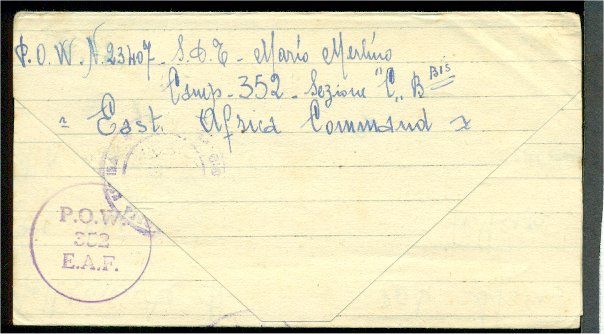 P.O.W. N. 23407 - S.O.T. - Mario Merlino
Camp - 352 - Sezione "C„ B Bis
= East. Africa Command x
P.O.W.
352
E.A.F.